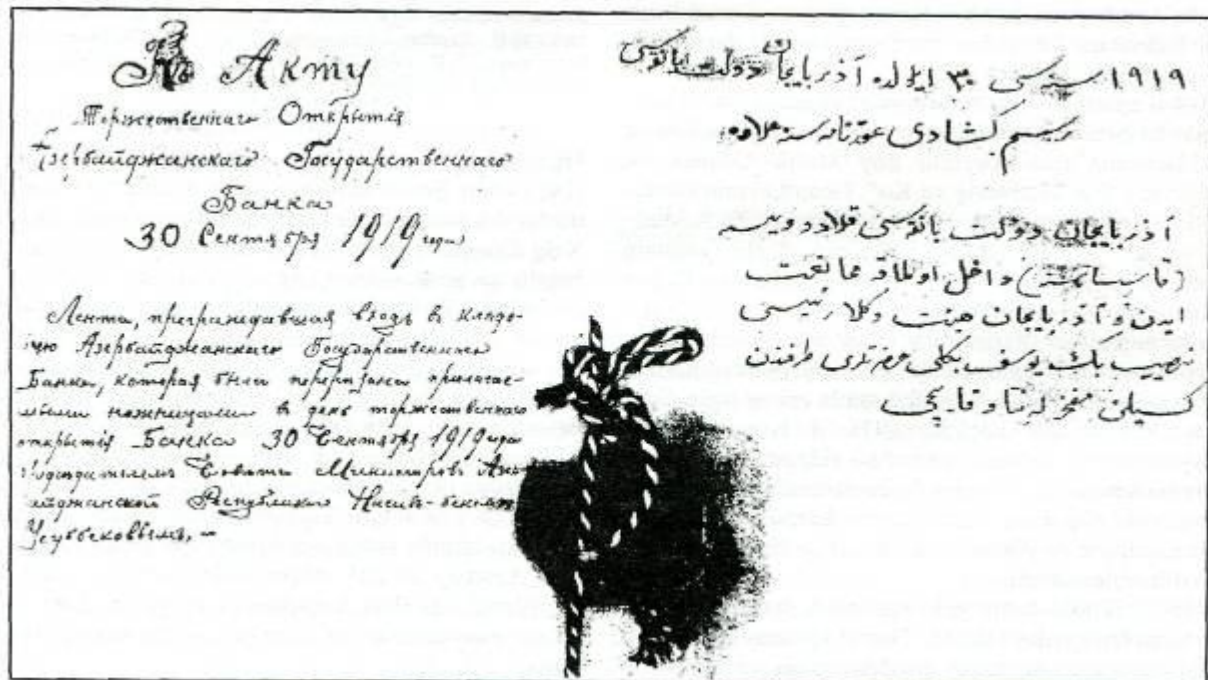 Къ Акту
Торжественнаго Открытія
Азербайджанскаго Государственнаго
Банка
30 Сентября 1919 года
Лента, преграждавшая входъ в кладо-
вую Азербайджанскаго Государственнаго
Банка, которая была перерѣзана прилагае-
мыми ножницами в день торжественнаго
открытія Банка 30 Сентября 1919 года
Предсѣдателемъ Совѣта Министровъ Азер-
байджанской Республики Насибъ-бекомъ
Усуббековымъ. —
١٩١٩ سنه‌سی ٣٠ ایلول. آذربایجان دولت بانقسی
رسم کشادی
آذربایجان دولت بانقسی
داخل اولماقه ممانعت
ایدن و آذربایجان هیئت وکلا رئیسی
نصیب بك یوسف بکلی حضرتلری طرفندن
کسیلن